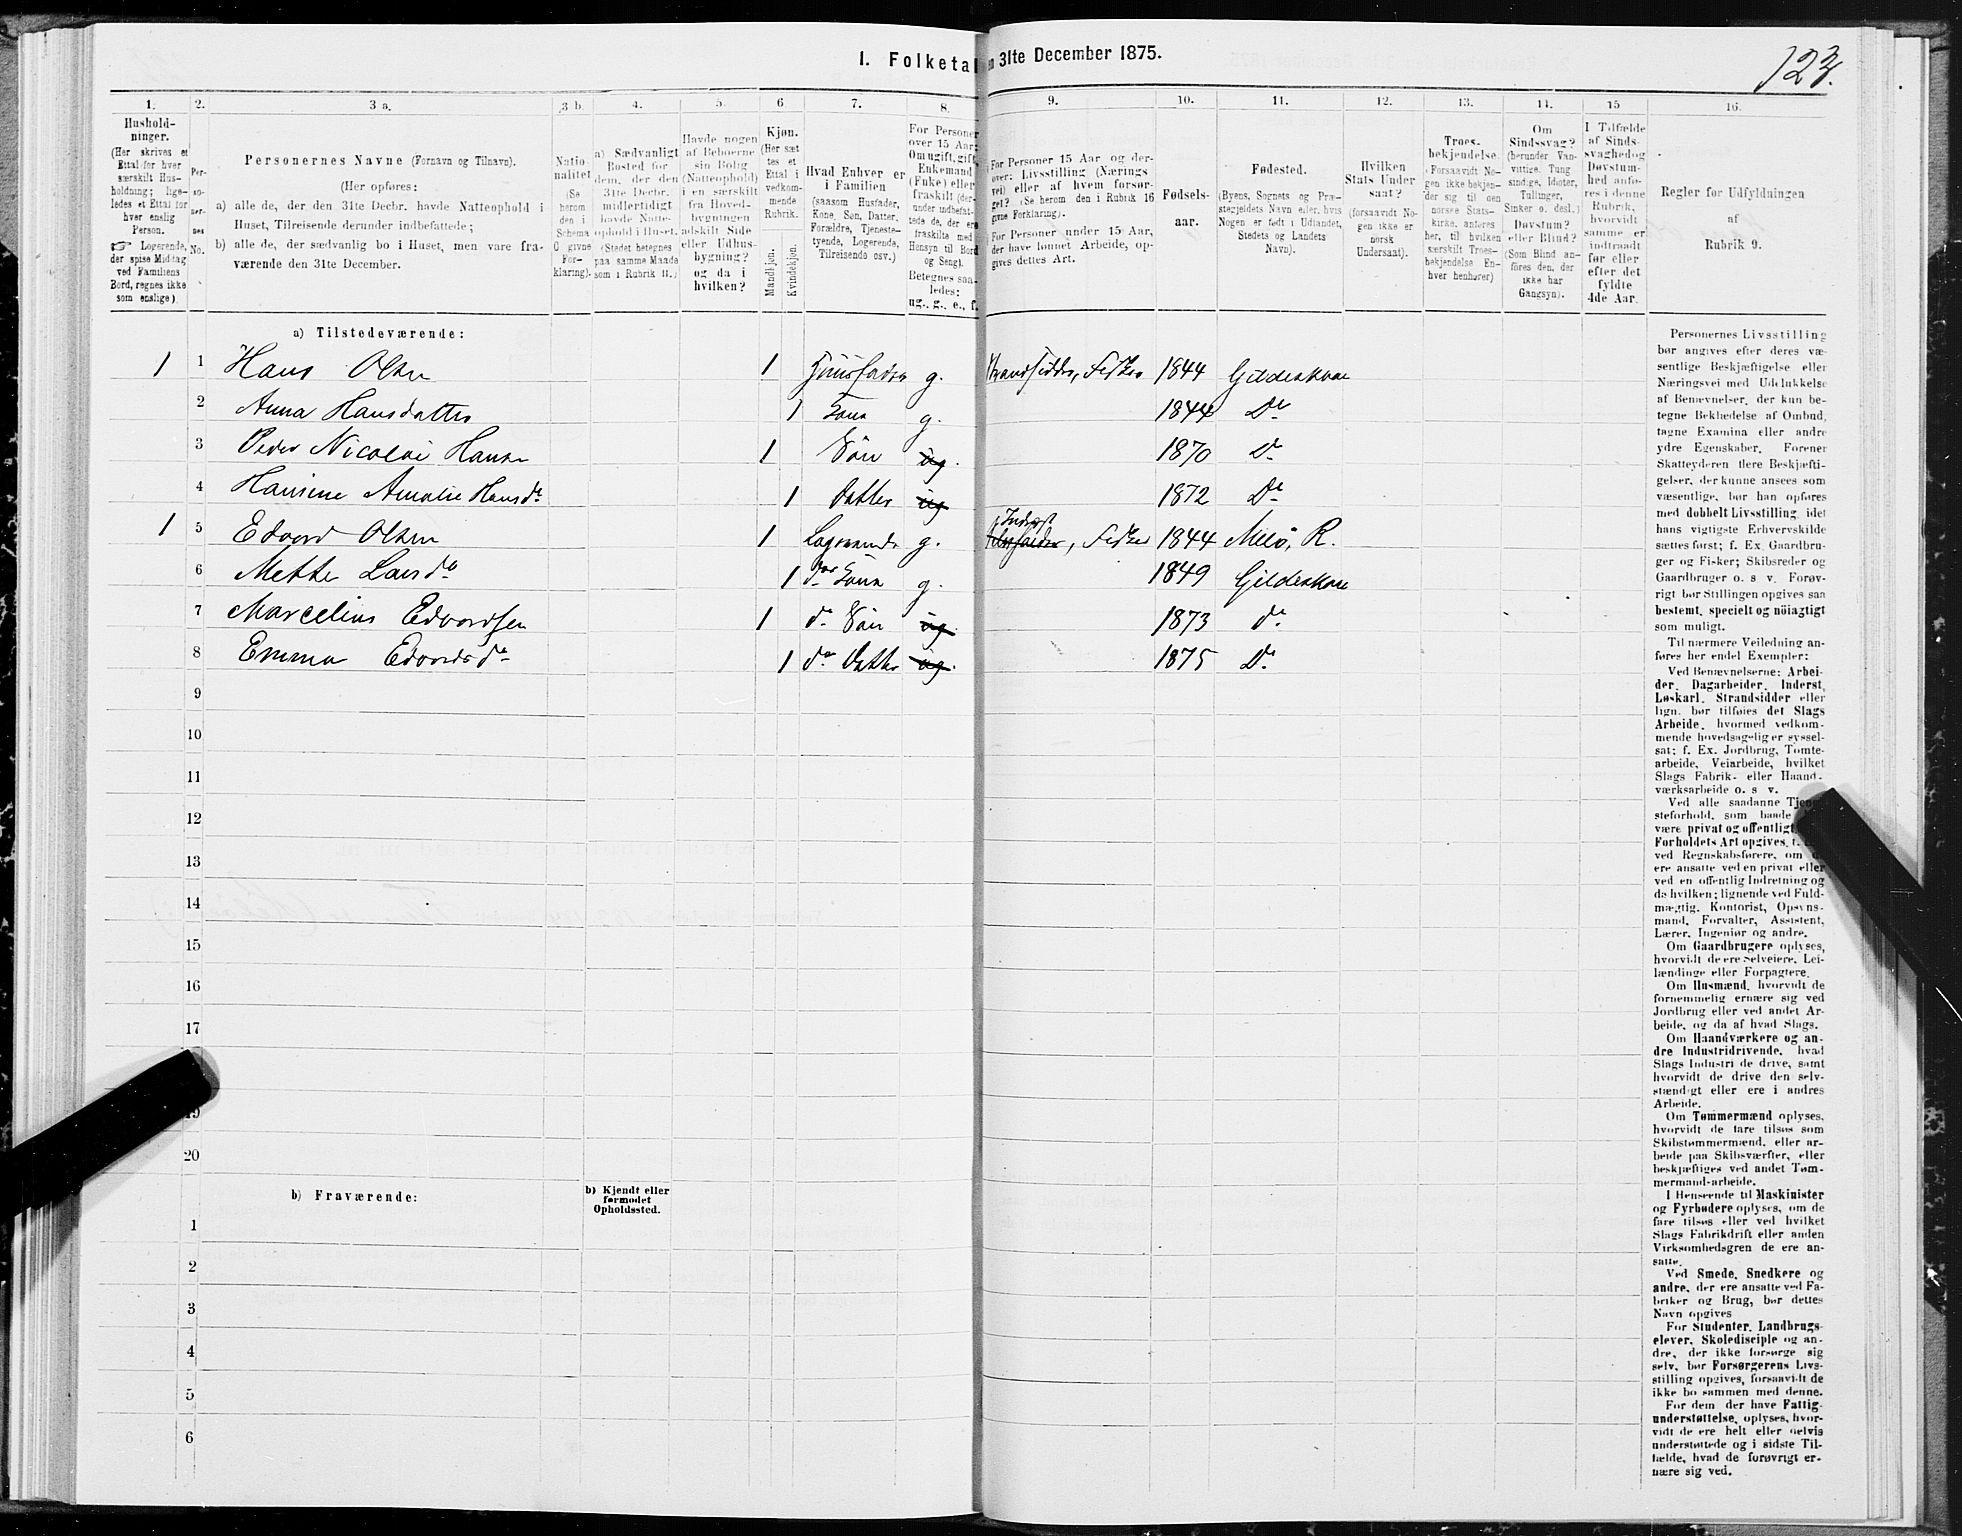 1. Folketal
en 31te December 1875.
123.
1.
Hushold-
ninger.
(Her skrives et
Ettal for hver
særskilt Hus-
holdning; lige-
ledes et Ettal for
hver enslig
Person.
☞ Logerende,
der spise Middag
ved Familiens
Bord, regnes ikke
som enslige).
2.
Per-
so-
ner-
nes
No.
3 a.
Personernes Navne (Fornavn og Tilnavn).
(Her opføres:
a) alle de, der den 31te Decbr. havde Natteophold i
Huset, Tilreisende derunder indbefattede;
b) alle de, der sædvanlig bo i Huset, men vare fra-
værende den 31te December.
3 b.
Natio
nalitet
(Se
herom
den i
Schema
C givne
For-
klaring).
4.
a) Sædvanligt
Bosted for
dem, der den
31te Decbr.
midlertidigt
havde Natte-
ophold i Huset.
(Stedet betegnes
paa samme Maade
som i Rubrik 11.)
5.
Havde nogen
af Beboerne
sin Bolig
(Natteophold)
i en særskilt
fra Hoved-
bygningen
adskilt Side
eller Udhus-
bygning?
og da i
hvilken?
6.
Kjøn.
(Her sæt
tes et
Ettal i
vedkom-
mende
Rubrik.
Mandkjøn.
Kvindekjøn.
7.
Hvad Enhver er
i Familien
(saasom Husfader,
Kone, Søn, Datter,
Forældre, Tjeneste-
tyende, Logerende,
Tilreisende osv.)
8.
For Personer
over 15 Aar:
Om ugift, gift,
Enkemand
(Enke) eller
fraskilt (der-
under indbefat-
tede de, der ere
fraskilte med
Hensyn til Bord
og Seng).
Betegnes saa-
ledes:
ug., g., e., f.
9.
For Personer 15 Aar og der-
over: Livsstilling (Nærings
vei) eller af hvem forsør-
get? (Se herom den i Rubrik 16
givne Forklaring).
For Personer under 15 Aar,
der have lønnet Arbeide, op-
gives dettes Art.
10.
Fødsels-
aar.
11.
Fødested.
(Byens, Sognets og Præ-
stegjeldets Navn eller, hvis
Nogen er født i Udlandet,
Stedets og Landets
Navn).
12.
Hvilken
Stats Under
saat?
(forsaavidt No-
gen ikke er
norsk
Undersaat).
13.
Troes-
bekjendelse.
(Forsaavidt No-
gen ikke bekjen-
der sig til den
norske Stats-
kirke, anføres
her, til hvilken
særskilt Troes-
bekjendelse En-
hver henhører)
14.
Om
Sindssvag?
(herunder Van-
vittige, Tung
sindige, Idioter,
Tullinger,
Sinker o. desl.)
Døvstum?
eller Blind?
(Som Blind an-
føres den, der
ikke har
Gangsyn).
15
I Tilfælde
af Sinds-
svaghed og
Døvstum-
hed anfø-
res i denne
Rubrik,
hvorvidt
samme er
indtraadt
før eller
efter det
fyldte
4de Aar.
16.
Regler for Udfyldningen
af
Rubrik 9.
a) Tilstedeværende:
1 1 Hans Olsen 1 Huusfader g. Strandsidder, Fisker 1844 Gildeskaal
2 Anna Hansdatter 1 Kone g. 1844 Do
3 Peder Nicolai Hansen 1 Søn ug. 1870 Do
4 Hansine Amalie Hansdr 1 Datter ug 1872 Do
1 5 Edvard Olsen 1 Logerende g. Inderst, Fisker 1844 Melø, R.
6 Mette Larsdr 1 ds Kone g. 1849 Gildeskaal
7 Marcelius Edvardsen 1 ds Søn ug. 1873 do
8 Emma Edvardsdr 1 ds Datter ug. 1875 Do
9
10
11
12
13
14
15
16
17
19
20
b) Fraværende:
b) Kjendt eller
formodet
Opholdssted.
1
2
3
4
5
6
Personernes Livsstilling
bør angives efter deres væ-
sentlige Beskjæftigelse eller
Næringsvei med Udelukkelse
af Benævnelser, der kun be-
tegne Beklædelse af Ombud,
tagne Examina eller andre
ydre Egenskaber. Forener
Skatteyderen flere Beskjæfti-
gelser, der kunne ansees som
væsentlige, bør han opføres
med dobbelt Livsstilling, idet
hans vigtigste Erhvervskilde
sættes først; f. Ex. Gaardbru-
ger og Fisker; Skibsreder og
Gaardbruger o. s v. Forøv-
rigt bør Stillingen opgives saa
bestemt, specielt og nöiagtigt
som muligt.
Til nærmere Veiledning an-
føres her endel Exempler:
Ved Benævnelserne: Arbei-
der, Dagarbeider, Inderst,
Løskarl, Strandsidder eller
lign. bør tilføies det Slags
Arbeide, hvormed vedkom-
mende hovedsagelig er syssel-
sat; f. Ex. Jordbrug, Tomte-
arbeide, Veiarbeide, hvilket
Slags Fabrik- eller Haand-
værksarbeide o. s v.
Ved alle saadanne Tjene-
steforhold, som baade
være privat og offentligt,
Forholdets Art opgives, t.
ved Regnskabsførere, om
ere ansatte ved en privat eller
ved en offentlig Indretning og
da hvilken; lignende ved Fuld-
mægtig, Kontorist, Opsyns-
mand, Forvalter, Assistent,
Lærer, Ingeniør og andre.
Om Gaardbrugere oplyses,
hvorvidt de ere Selveiere, Lei-
lændinge eller Forpagtere.
Om Husmænd, hvorvidt de
fornemmelig ernære sig ved
Jordbrug eller ved andet Ar-
beide, og da af hvad Slags.
Om Haandværkere og an-
dre Industridrivende, hvad
Slags Industri de drive, samt
hvorvidt de drive den selv-
stændigt eller ere i andres
Arbeide.
Om Tømmermænd oplyses,
hvorvidt de fare tilsøs som
Skibstømmermænd, eller ar-
beide paa Skibsværfter, eller
beskjæftiges ved andet Tøm-
mermand-arbeide.
I Henseende til Maskinister
og Fyrbødere oplyses, om de
fare tilsøs eller ved hvilket
Slags Fabrikdrift eller anden
Virksomhedsgren de ere an-
satte.
Ved Smede, Snedkere og
andre, der ere ansatte ved Fa-
briker og Brug, bør dettes
Navn opgives
For Studenter, Landbrugs-
elever, Skoledisciple og an-
dre, der ikke forsørge sig
selv, bør Forsørgerens Livs-
stilling opgives, forsaavidt de
ikke bo sammen med denne.
For dem der have Fattig-
understøttelse, oplyses, hvor-
vidt de ere helt eller delvis
understøttede og i sidste Til-
fælde, hvad de forøvrigt er-
nære sig ved.